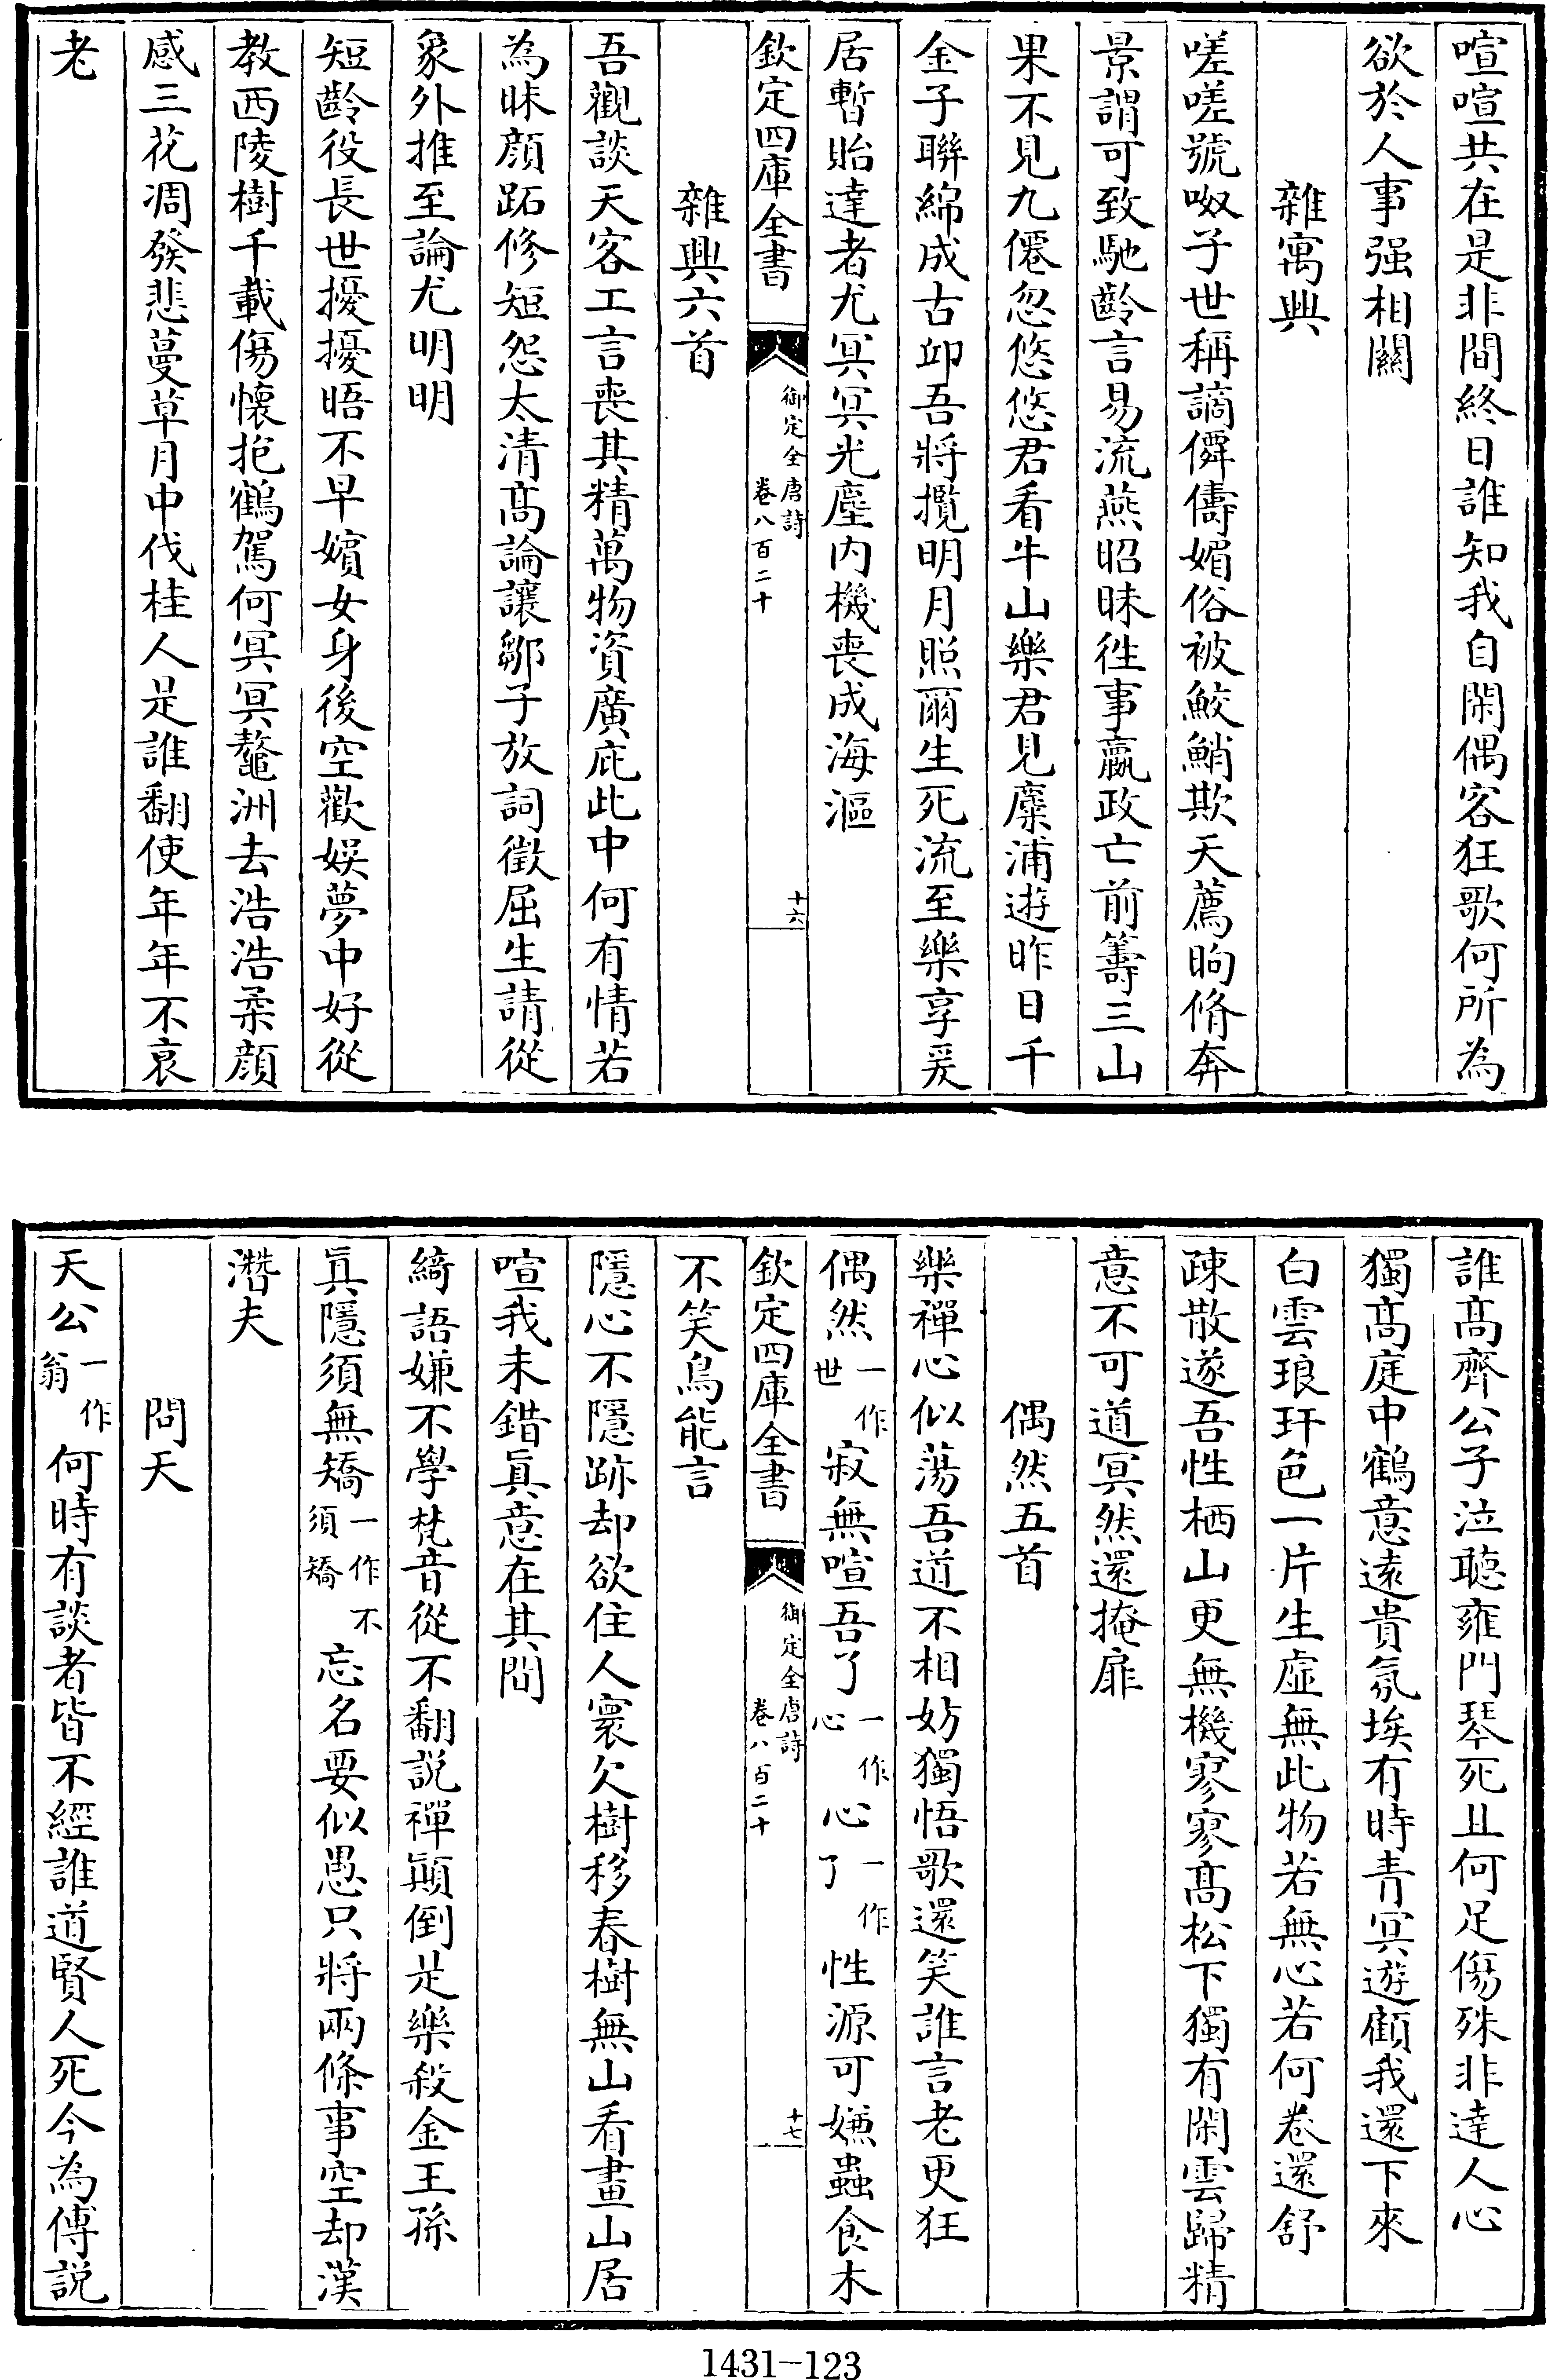 喧喧共在是非間終日誰知我自閑偶客狂歌何所為
欲於人事强相關
雜寓興
嗟嗟號呶子世稱謫僊儔媚俗被鮫鮹欺天薦昫脩奔
景謂可致馳齡言易流燕昭昧徃事嬴政亡前籌三山
果不見九僊忽悠悠君看牛山樂君見麋浦遊昨日千
金子聯綿成古邱吾將攬明月照爾生死流至樂享爰
居暫貽達者尤冥冥光塵内機喪成海漚
欽定四庫全書
御定全唐詩
卷八百二十
十六
雜興六首
吾觀談天客工言喪其精萬物資廣庇此中何有情若
為昧顔跖修短怨太清髙論讓鄒子放詞徵屈生請從
象外推至論尤明明
短齡役長世擾擾晤不早嬪女身後空歡娱夢中好從
教西陵樹千載傷懷抱鶴駕何冥冥鼇洲去浩浩柔顔
感三花凋發悲蔓草月中伐桂人是誰翻使年年不衰
老
誰髙齊公子泣聽雍門琴死且何足傷殊非達人心
獨髙庭中鶴意遠貴氛埃有時青冥遊顧我還下來
白雲琅玕色一片生虚無此物若無心若何卷還舒
疎散遂吾性栖山更無機寥寥髙松下獨有閑雲歸精
意不可道冥然還掩扉
偶然五首
樂禪心似蕩吾道不相妨獨悟歌還笑誰言老更狂
偶然一作世寂無喧吾了一作心心一作了性源可嫌蟲食木
欽定四庫全書
御定全唐詩
卷八百二十
十七
不笑鳥能言
隱心不隱跡却欲住人寰欠樹移春樹無山看畫山居
喧我未錯眞意在其間
綺語嫌不學梵音從不翻説禪顚倒是樂殺金王孫
眞隱須無矯一作不須矯忘名要似愚只將兩條事空却漢
潛夫
問天
天公一作翁何時有談者皆不經誰道賢人死今為傅説
1431-123